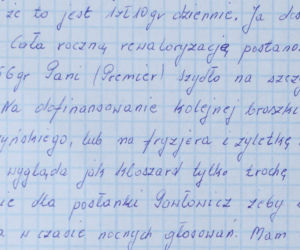 że to jest 1zł 10gr dziennie. Ja do
Cała roczną rewaloryzację postano
56gr Pani (Premier) szydło na szczy
Na dofinansowanie kolejnej broszki
zyńskiego, lub na fryzjera i żyletkę
wygląda jak kloszard tylko trochę
ie dla posłanki Pawłowicz żeby
a w czasie nocnych głosowań. Mam